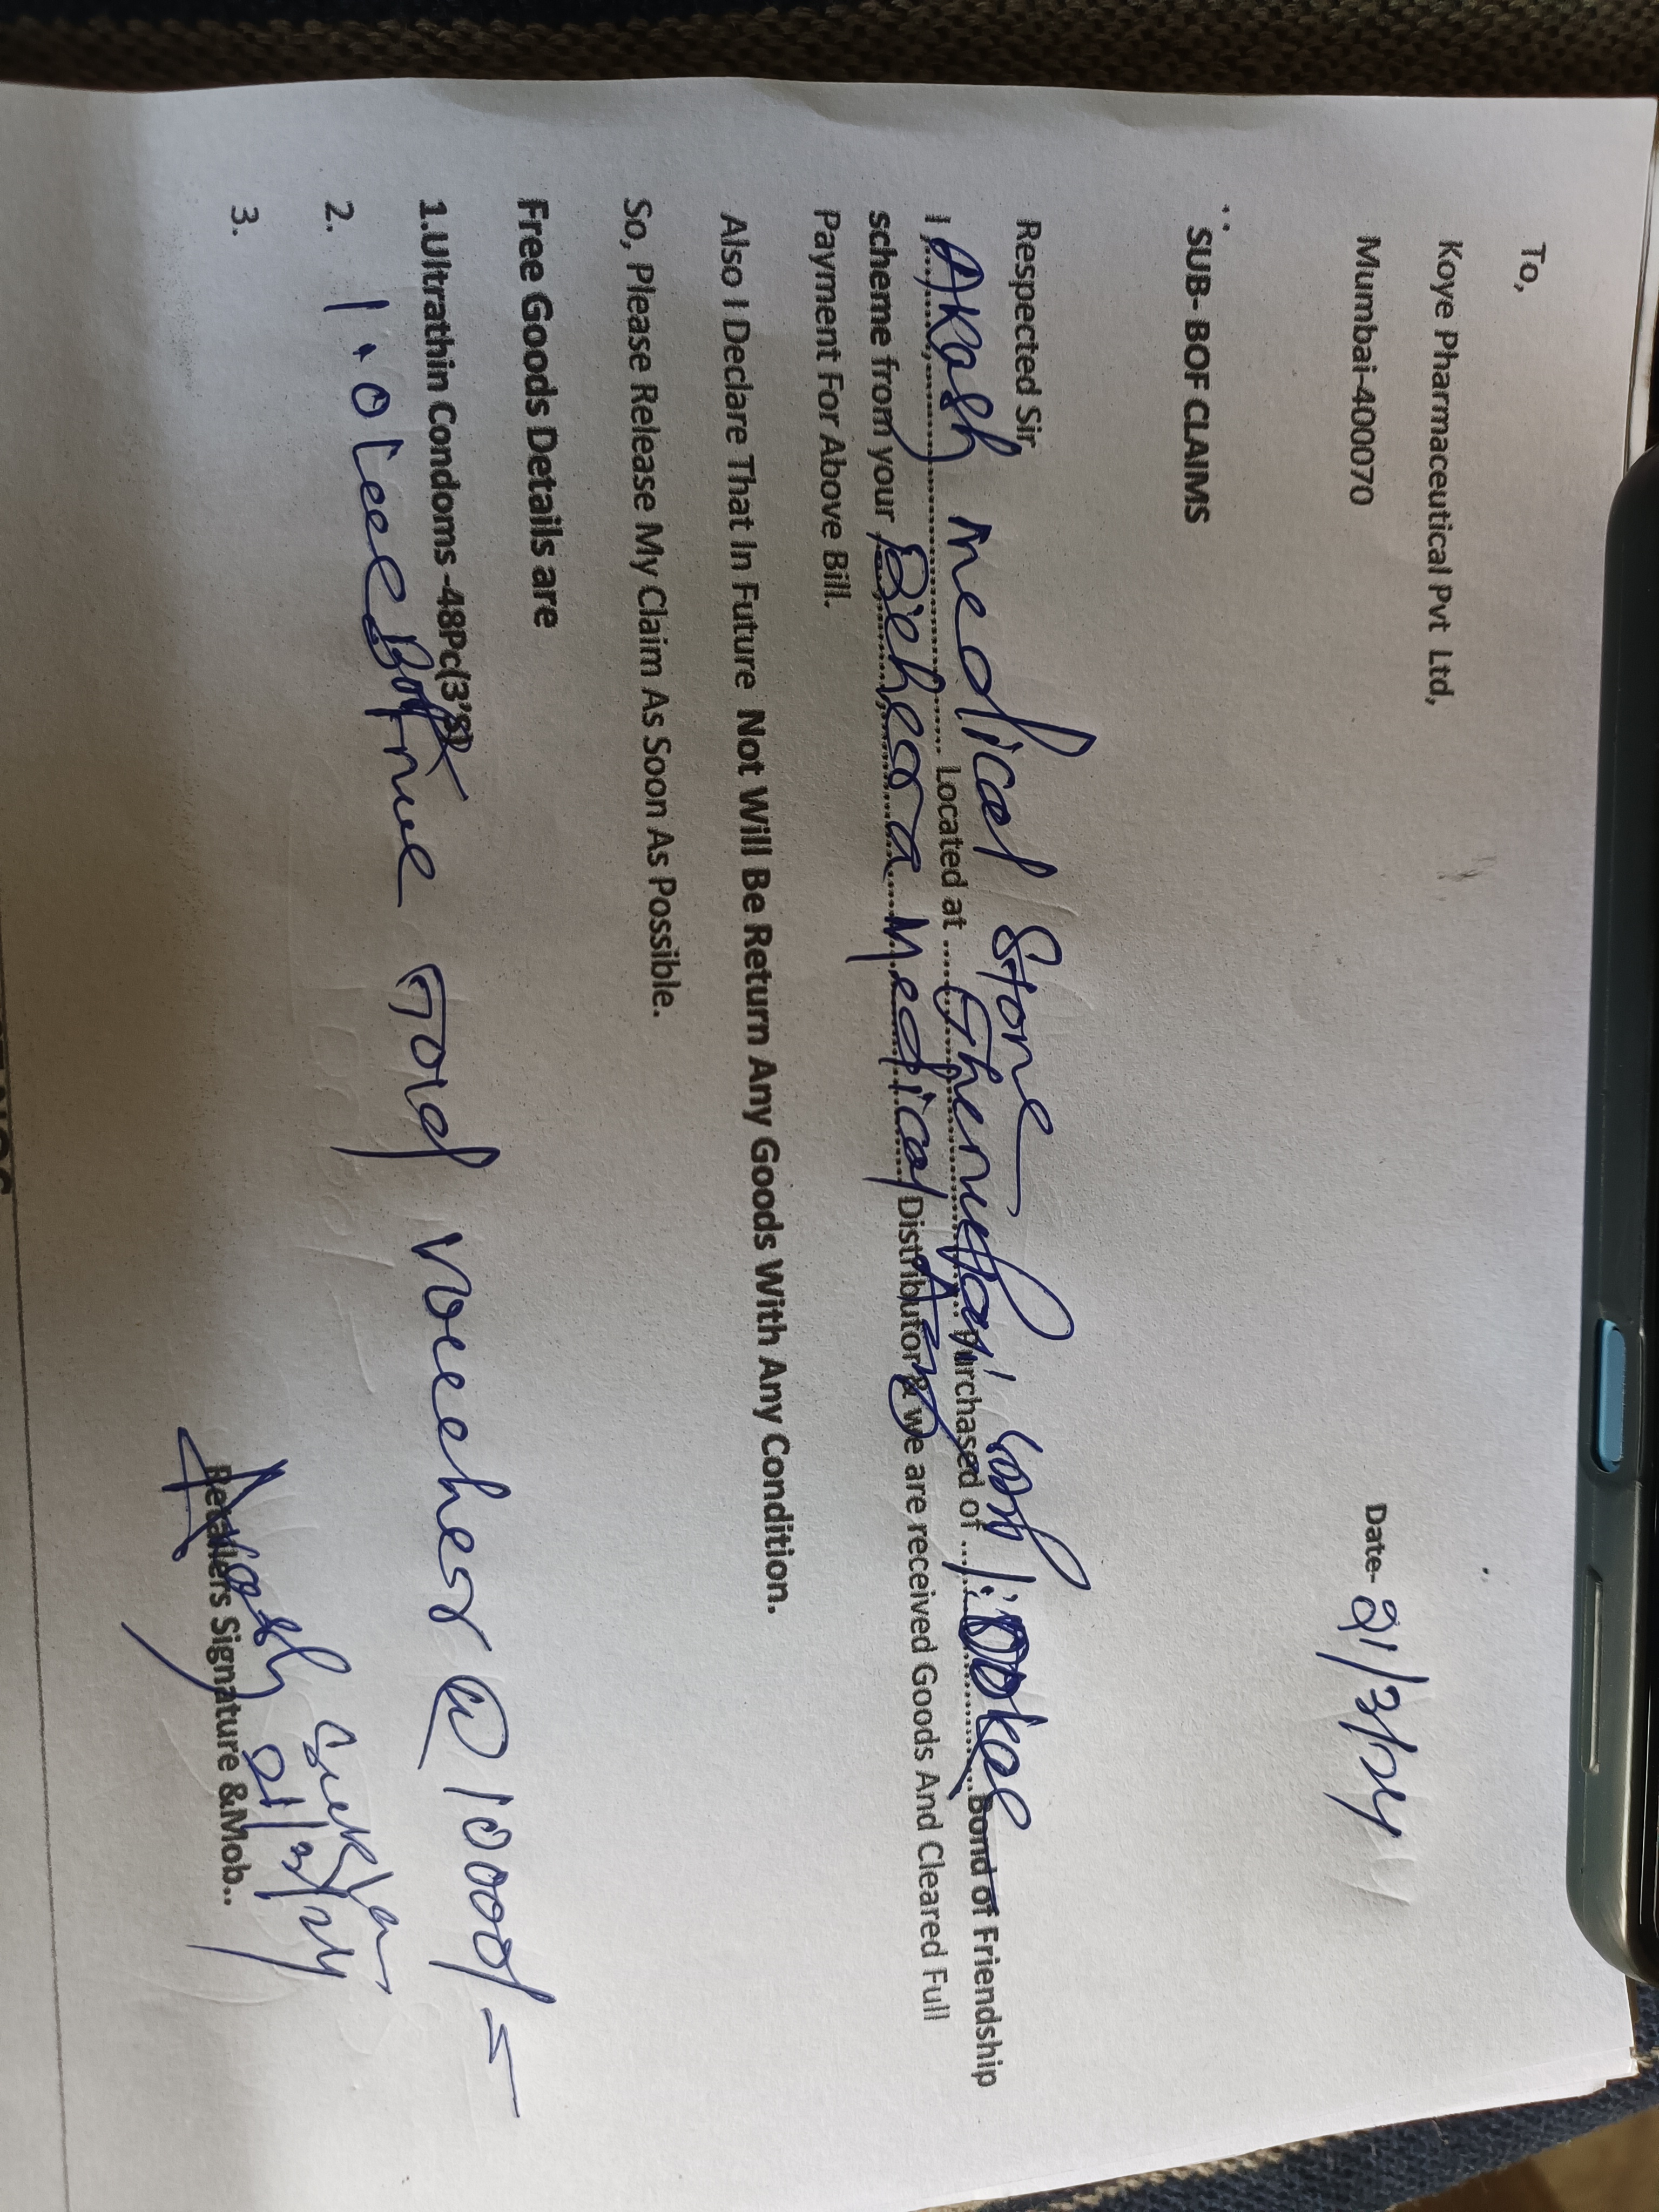 To,
Koye Pharmaceutical Pvt Ltd,
Mumbai-400070
Date- 21/3/24
SUB- BOF CLAIMS
Respected Sir
I, Akash medical Store Located at Purchased of Bond of Friendship
scheme from your Behera Medical Distributor & we are received Goods And Cleared Full
Payment For Above Bill.
Also I Declare That In Future Not Will Be Return Any Goods With Any Condition.
So, Please Release My Claim As Soon As Possible.
Free Goods Details are
1.Ultrathin Condoms -48Pc(3's)
2. Gold voucher @ 1000/=
3.
Retailers Signature &Mob..
21/3/24